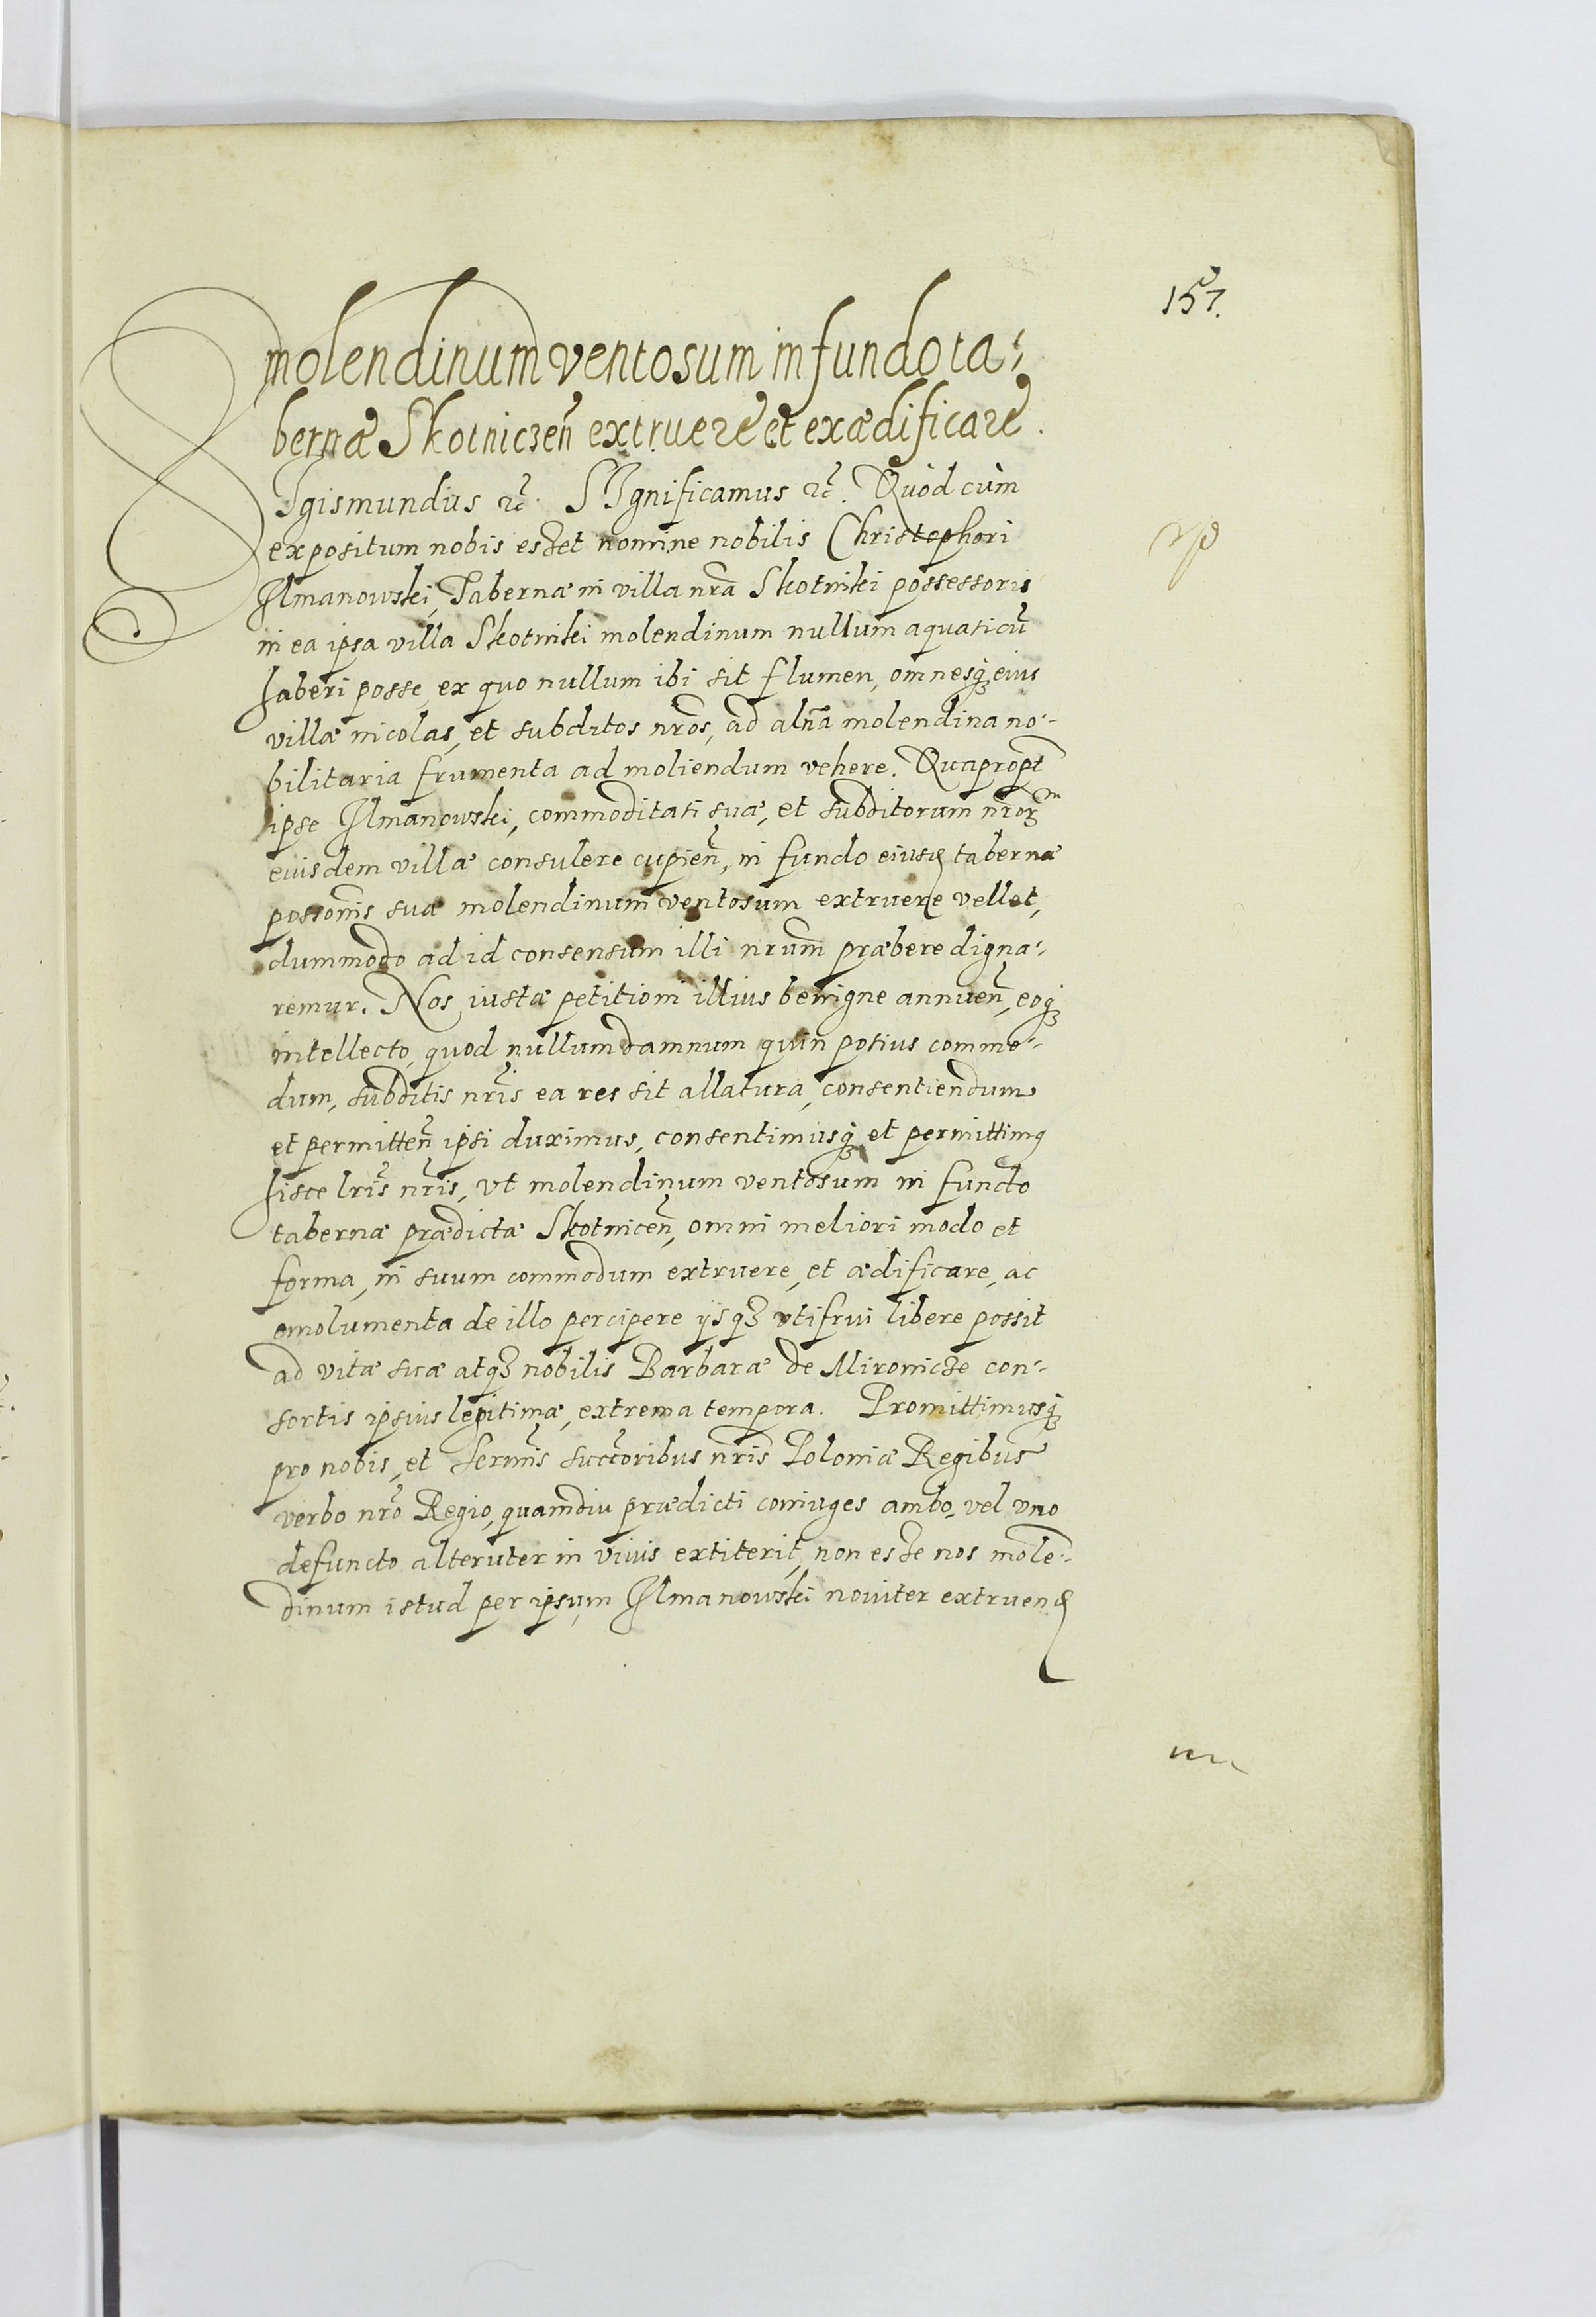 157.
molendinum ventosum in fundo ta-
bernæ Skotniczen̄ extruere et exædificare.
SIgismundus ꝛc̃. SIgnificamus ꝛc̃. Quòd cùm
expositum nobis esset nomine nobilis Christophori
Ilmanowski, Tabernæ in villa nr̃a Skotniki possessoris
in ea ipsa villa Skotniki molendinum nullum aquaticũ
haberi posse, ex quo nullum ibi sit flumen, omnesq̃ eius
villæ incolas, et subditos nr̃os, ad aln̄a molendina no-
bilitaria frumenta ad moliendum vehere. Quapropt̃
ipse Ilmanowski, commoditati suæ, et subditorum nr̃or̃m
eiusdem villæ consulere cupien̄, in fundo eiusd̃ tabernæ
possonĩs suæ molendinum ventosum extruere vellet,
dummodo ad id consensum illi nr̃um præbere digna-
remur. Nos iustæ petitioni illius benigne annuen̄, eoq̃
intellecto, quod nullum damnum quin potius commo-
dum, subditis nr̃is ea res sit allatura, consentiendum
et permitten̄ ipsi duximus, consentimusq̃ et permittimꝰ
hisce lr̃is nr̃is, vt molendinum ventosum in fundo
tabernæ prædictæ Skotnicen̄, omni meliori modo et
forma, in suum commodum extruere, et ædificare, ac
emolumenta de illo percipere ijsqꝫ vtifrui libere possit
ad vitæ suæ atqꝫ nobilis Barbaræ de Mironicze con-
sortis ipsius legitimæ, extrema tempora. Promittimusq̃
pro nobis, et Sermĩs succc̃oribus nr̃is Poloniæ Regibus
verbo nr̃o Regio, quamdiu prædicti coniuges ambo, vel vno
defuncto alteruter in viuis extiterit, non esse nos mole-
dinum istud per ipsum Ilmanowski nouiter extruend̃